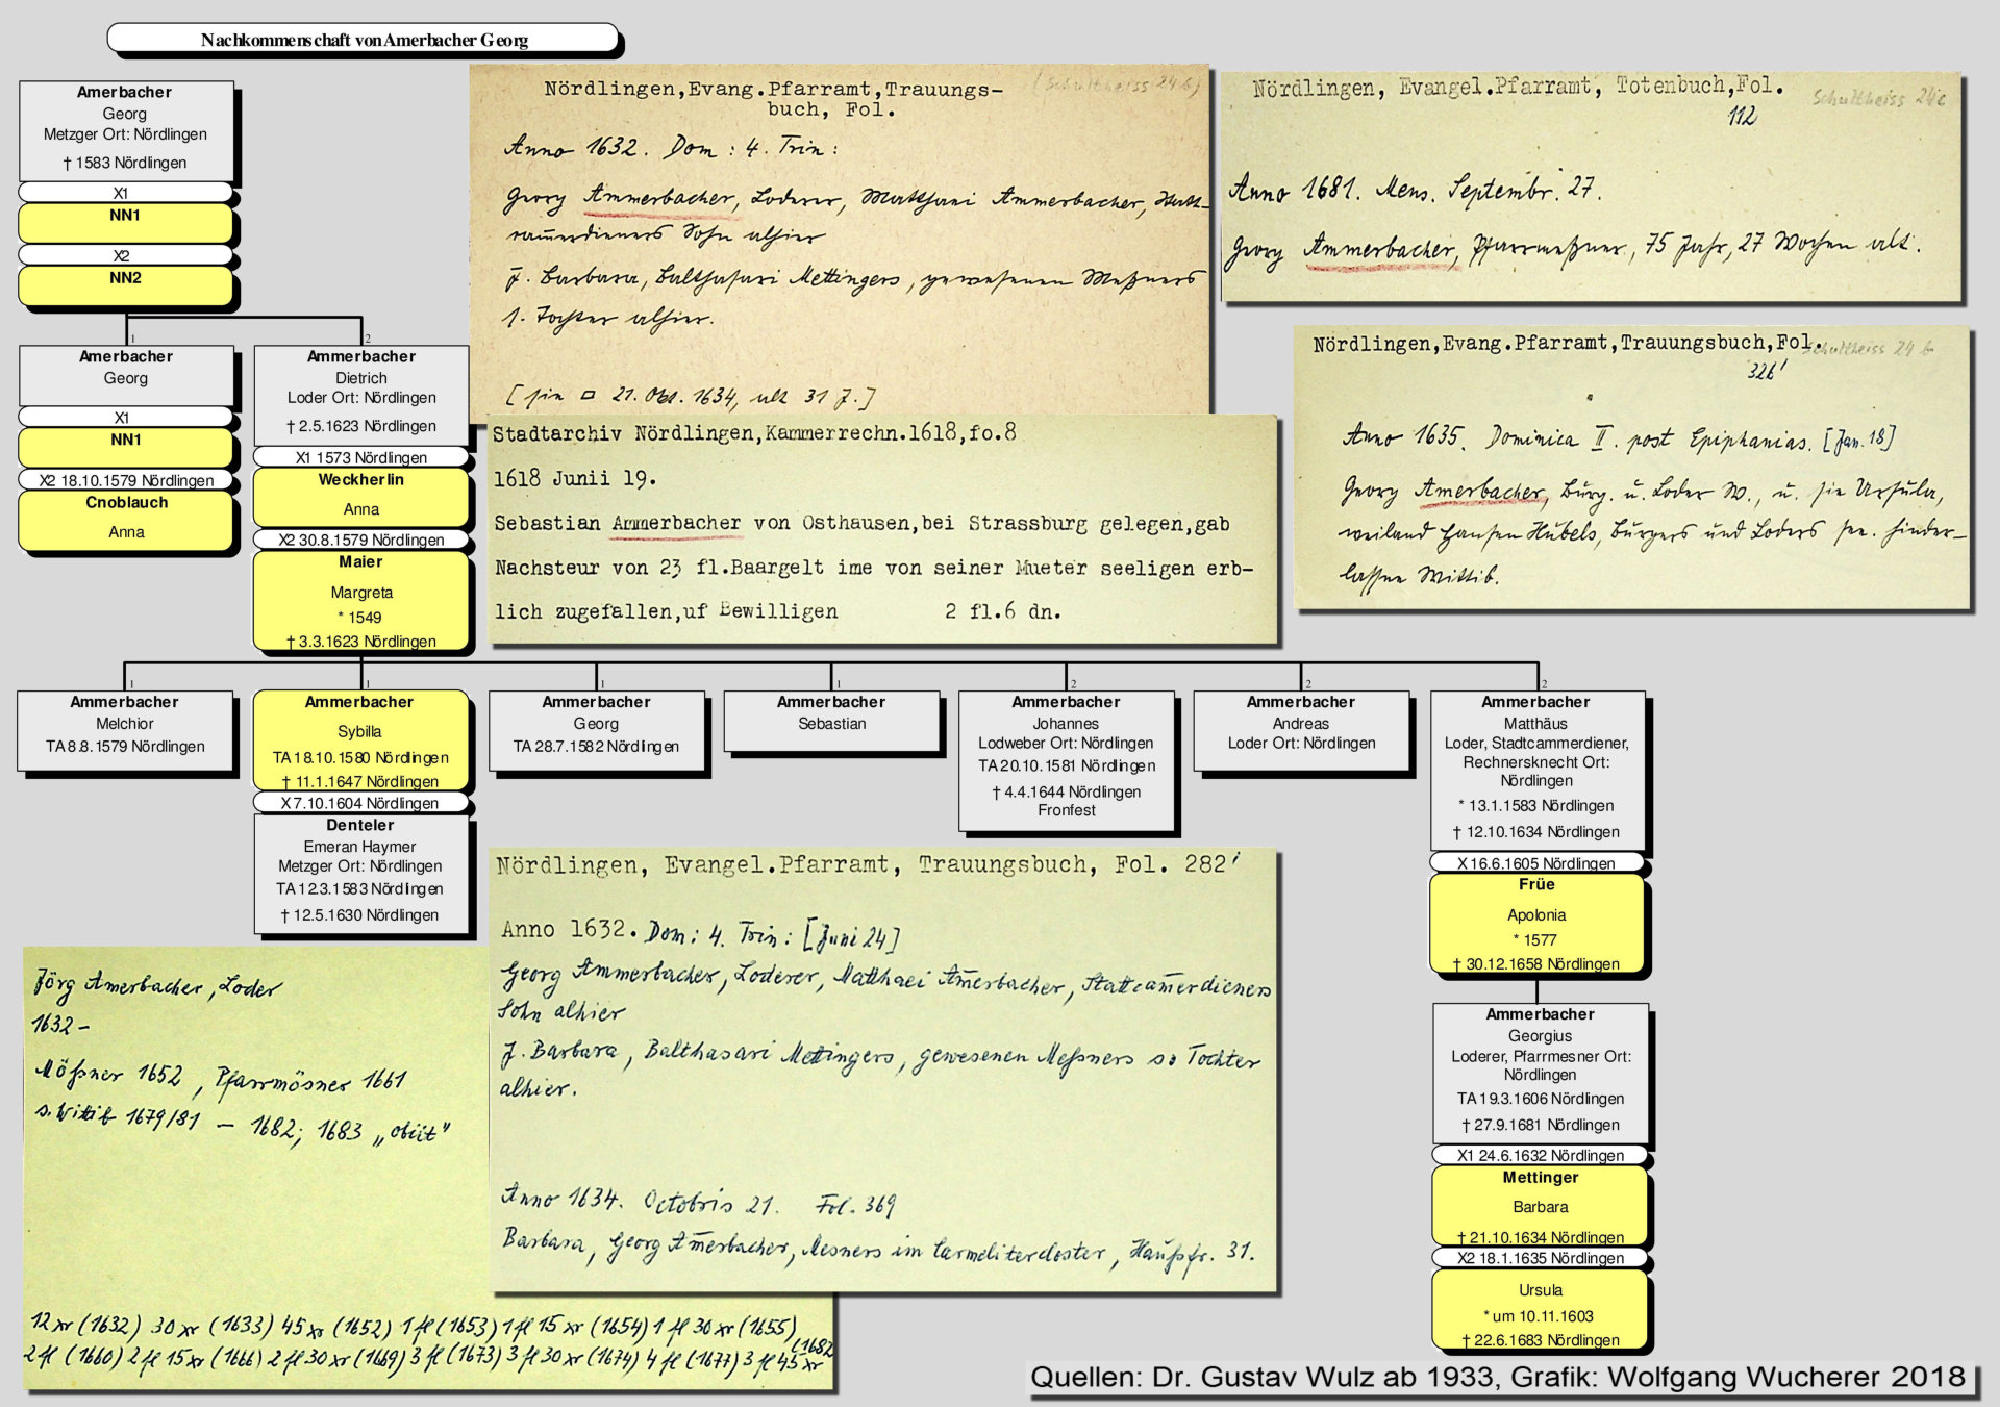 Nachkommenschaft von Amerbacher Georg
Amerbacher
Georg
Metzger Ort: Nördlingen
† 1583 Nördlingen
X1
NN1
X2
NN2
1
2
Amerbacher
Georg
X1
NN1
X2 18.10.1579 Nördlingen
Cnoblauch
Anna
Ammerbacher
Dietrich
Loder Ort: Nördlingen
† 2.5.1623 Nördlingen
X1 1573 Nördlingen
Weckherlin
Anna
X2 30.8.1579 Nördlingen
Maier
Margreta
* 1549
† 3.3.1623 Nördlingen
(Schultheiss 24 b)
Nördlingen,Evang.Pfarramt,Trauungs-
buch, Fol.
Anno 1632. Dom : 4. Trin :
Georg Ammerbacher, Loderer, Matthaei Ammerbacher, Statt-
cam̄erdieners Sohn alhier
J. Barbara, Balthasari Mettingers, gewesenen Meßners
s. Tochter alhier.
[ sie □ 21. Okt. 1634, alt 31 J. ]
Nördlingen, Evangel.Pfarramt, Totenbuch,Fol.
Schultheiss 24c
112
Anno 1681. Mens. Septembr. 27.
Georg Ammerbacher, Pfarrmeßner, 75 Jahr, 27 Wochen alt.
Nördlingen,Evang.Pfarramt,Trauungsbuch,Fol.
Schultheiss 24 b
326'
Anno 1635. Dominica II. post Epiphanias. [Jan. 18]
Georg Amerbacher, Burg. u. Loder W., u. sie Ursula,
weiland Hansen Hübels, Burgers und Loders see. hinder-
lassne Wittib.
Stadtarchiv Nördlingen,Kammerrechn.1618,fo.8
1618 Junii 19.
Sebastian Ammerbacher von Osthausen,bei Strassburg gelegen,gab
Nachsteur von 23 fl.Baargelt ime von seiner Mueter seeligen erb-
lich zugefallen,uf Bewilligen 2 fl.6 dn.
1
1
1
1
2
2
2
Ammerbacher
Melchior
TA 8.8.1579 Nördlingen
Ammerbacher
Sybilla
TA 18.10.1580 Nördlingen
† 11.1.1647 Nördlingen
X 7.10.1604 Nördlingen
Denteler
Emeran Haymer
Metzger Ort: Nördlingen
TA 12.3.1583 Nördlingen
† 12.5.1630 Nördlingen
Ammerbacher
Georg
TA 28.7.1582 Nördlingen
Ammerbacher
Sebastian
Ammerbacher
Johannes
Lodweber Ort: Nördlingen
TA 20.10.1581 Nördlingen
† 4.4.1644 Nördlingen
Fronfest
Ammerbacher
Andreas
Loder Ort: Nördlingen
Ammerbacher
Matthäus
Loder, Stadtcammerdiener,
Rechnersknecht Ort:
Nördlingen
* 13.1.1583 Nördlingen
† 12.10.1634 Nördlingen
X 16.6.1605 Nördlingen
Früe
Apolonia
* 1577
† 30.12.1658 Nördlingen
Ammerbacher
Georgius
Loderer, Pfarrmesner Ort:
Nördlingen
TA 19.3.1606 Nördlingen
† 27.9.1681 Nördlingen
X1 24.6.1632 Nördlingen
Mettinger
Barbara
† 21.10.1634 Nördlingen
X2 18.1.1635 Nördlingen
Ursula
* um 10.11.1603
† 22.6.1683 Nördlingen
Nördlingen, Evangel.Pfarramt, Trauungsbuch, Fol. 282'
Anno 1632. Dom: 4. Trin: [Juni 24]
Georg Ammerbacher, Loderer, Matthaei Am̄erbacher, Stattcam̄erdieners
Sohn alhier
J. Barbara, Balthasari Mettingers, gewesenen Meßners s. Tochter
alhier.
Anno 1634. Octobris 21. Fol. 369
Barbara, Georg Am̄erbacher, Mesners im Carmelitercloster, Haußfr. 31.
Jörg Amerbacher, Loder
1632 –
Mößner 1652, Pfarrmösner 1661
s. Wittib 1679/81 – 1682; 1683 „obiit"
12 xr (1632) 30 xr (1633) 45 xr (1652) 1 fl (1653) 1 fl 15 xr (1654) 1 fl 30 xr (1655)
2 fl (1660) 2 fl 15 xr (1666) 2 fl 30 xr (1669) 3 fl (1673) 3 fl 30 xr (1674) 4 fl (1677) 3 fl 45 xr (1682
Quellen: Dr. Gustav Wulz ab 1933, Grafik: Wolfgang Wucherer 2018